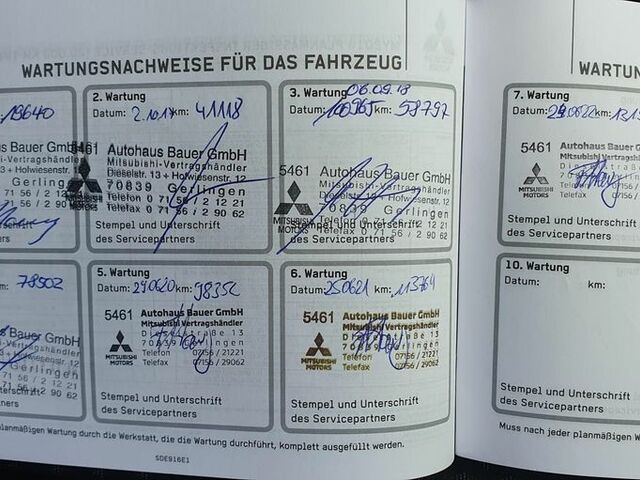 WARTUNGSNACHWEISE FÜR DAS FAHRZEUG
19640
5461
Bauer GmbH
-Vertragshändler
13 + Hofwiesenstr. 12
Gerlingen
71 56 / 2 12 21
71 56 / 2 90 62
Unterschrift
ers
2. Wartung
Datum: 2.10.17 km: 41118
Autohaus Bauer GmbH
Mitsubishi-Vertragshändler
Dieselstr. 13 + Hofwiesenstr. 12
70839 Gerlingen
Telefon 0 71 56 / 2 12 21
Telefax 0 71 56 / 2 90 62
Stempel und Unterschrift
des Servicepartners
3. Wartung 06.09.18
Datum: km: 58797
5461 Autohaus Bauer GmbH
Mitsubishi-Vertragshändler
Dieselstr. 13 + Hofwiesenstr. 12
Gerlingen
Telefon 0 71 56 / 2 12 21
Telefax 0 71 56 / 2 90 62
MITSUBISHI
MOTORS
Stempel und Unterschrift
des Servicepartners
m: 78502
Bauer GmbH
-Vertragshändler
Gerlingen
71 56 / 2 12 21
71 56 / 2 90 62
Unterschrift
ers
5. Wartung
Datum: 290620 km: 98352
5461 Autohaus Bauer GmbH
Mitsubishi Vertragshändler
Dieselstraße 13
70839 Gerlingen
Telefon 07156 / 21221
Telefax 07156 / 29062
MITSUBISHI
MOTORS
Stempel und Unterschrift
des Servicepartners
6. Wartung
Datum: 250621 km: 113764
5461 Autohaus Bauer GmbH
Mitsubishi Vertragshändler
Dieselstraße 13
70839 Gerlingen
Telefon 07156 / 21221
Telefax 07156 / 29062
MITSUBISHI
MOTORS
Stempel und Unterschrift
des Servicepartners
planmäßigen Wartung durch die Werkstatt, die die Wartung durchführt, komplett ausgefüllt werden.
SDE916E1
WARTUN
7. Wartung
Datum: km: 1315
5461 Autohaus Bauer
Mitsubishi Vertragshändler
Telefon
Telefax
MITSUBISHI
MOTORS
Stempel und Unterschrift
des Servicepartners
10. Wartung
Datum: km:
Stempel und Unterschrift
des Servicepartners
Muss nach jeder planmäßigen W